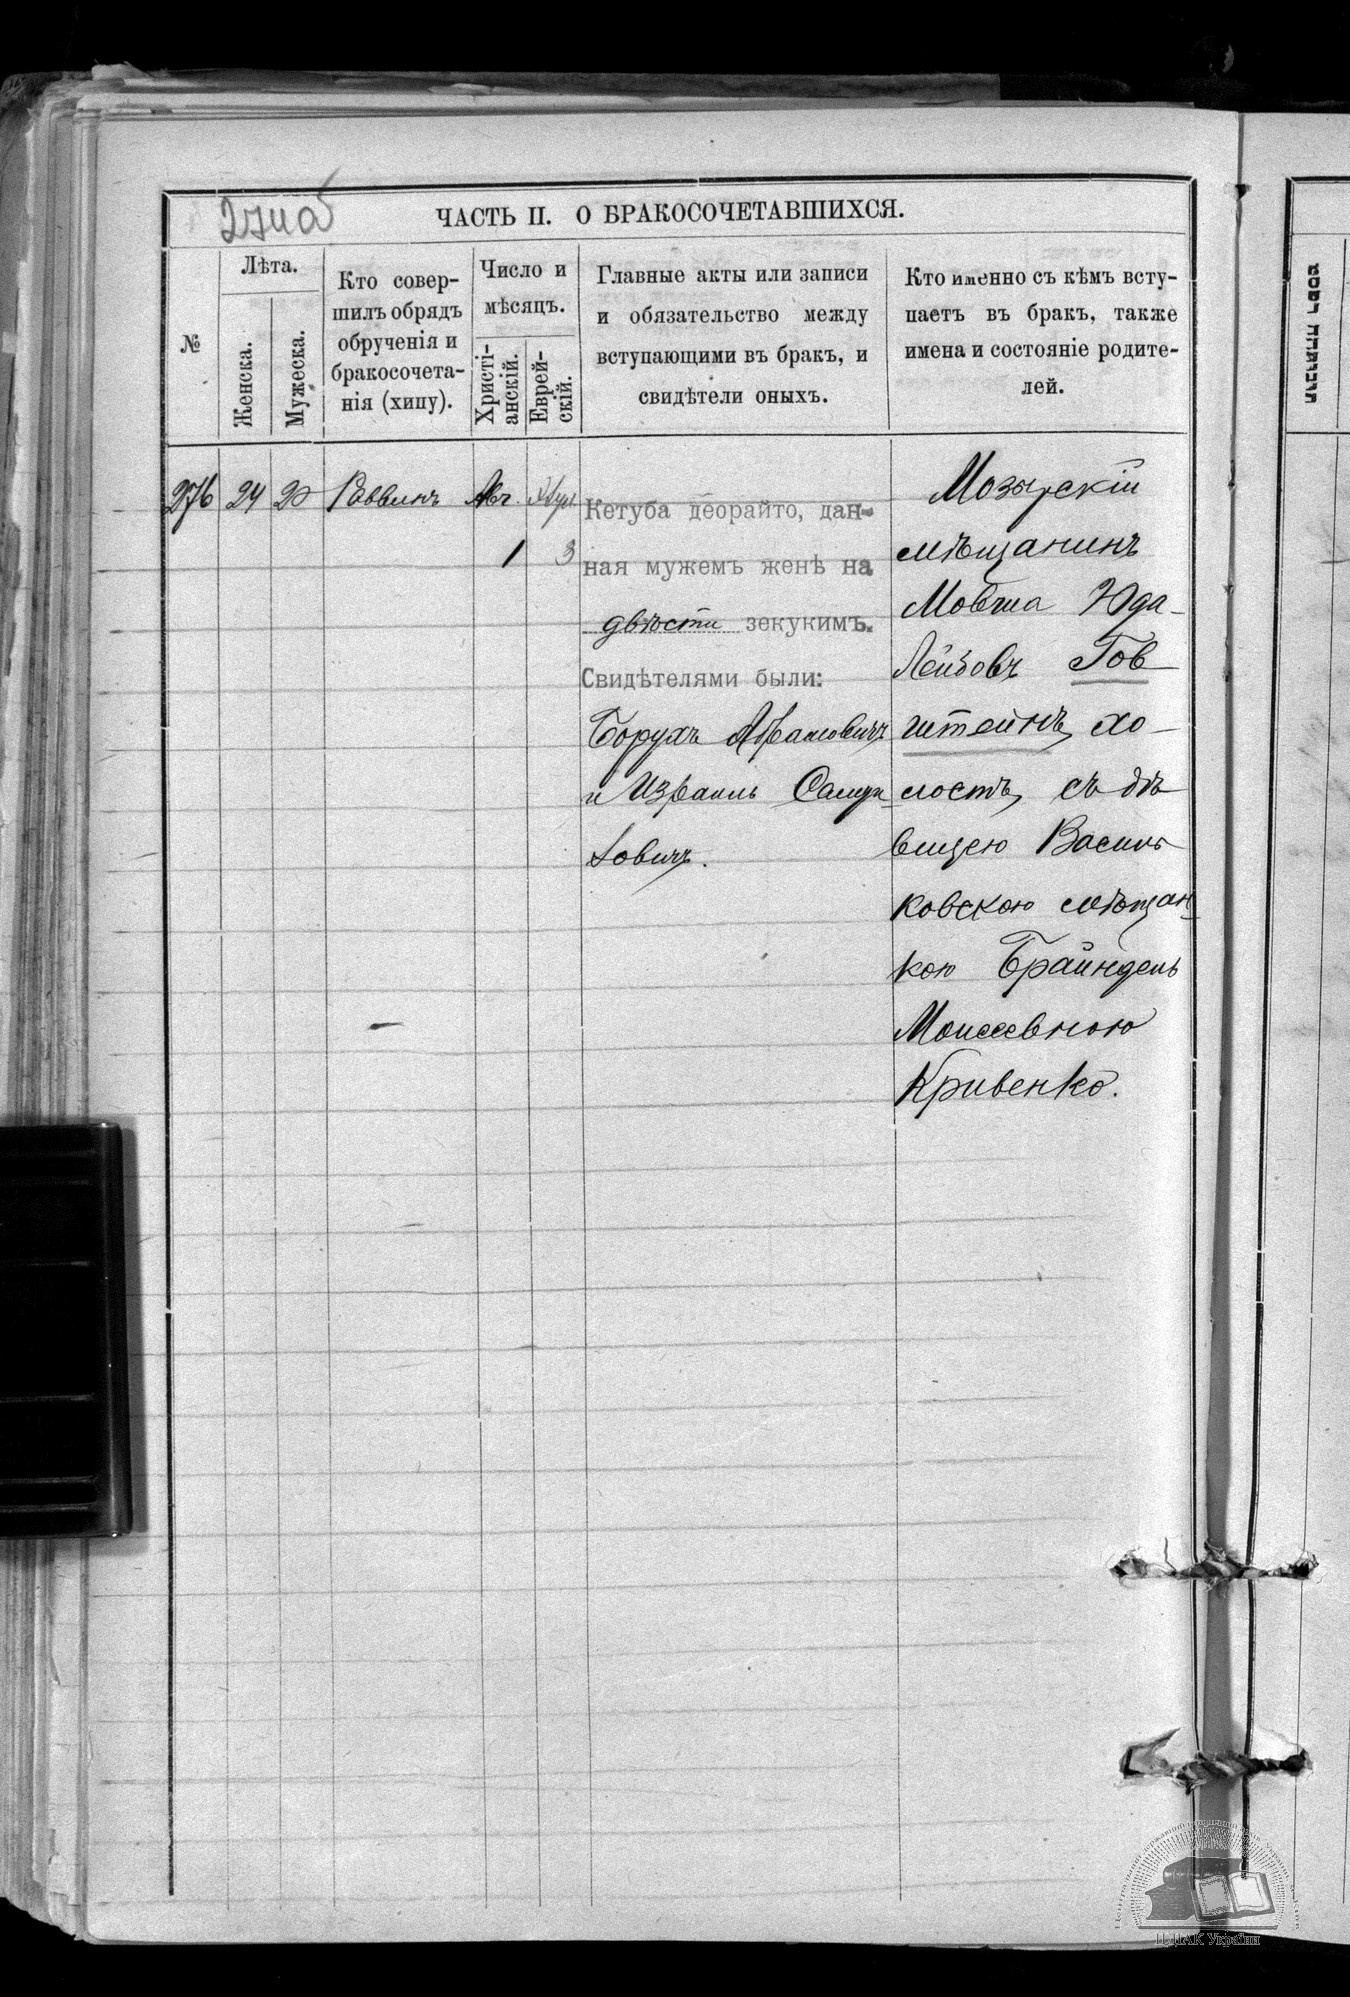 274 об
ЧАСТЬ II. О БРАКОСОЧЕТАВШИХСЯ.
№
Лѣта.
Женска.
Мужеска.
Кто совер-
шилъ обрядъ
обрученія и
бракосочета-
нія (хипу).
Число и
мѣсяцъ.
Христі-
анскій.
Еврей-
скій.
Главные акты или записи
и обязательство между
вступающими въ бракъ, и
свидѣтели оныхъ.
Кто именно съ кѣмъ всту-
паетъ въ бракъ, также
имена и состояніе родите-
лей.
276 24 Раввинъ Авг.
1 3
Кетуба деорайто, дан-
ная мужемъ женѣ на
двѣсти зекукимъ.
Свидѣтелями были:
Борухъ Абрамовичъ
и Израиль Самуи
ловичъ.
Мозырскій
мѣщанинъ
Мовша Юда-
Лейбовъ Гов
штейнъ, хо-
лостъ, съ дѣ
вицею Василь
ковскою мѣщан-
кою Брайндель
Моисеевною
Кривенко.
ЦДІАК України